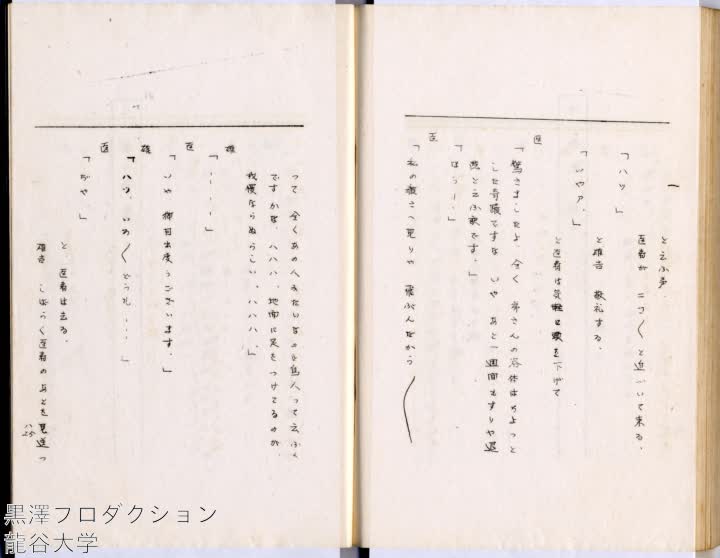 一
と云ふ声。
医者が ニコ〱と近づいて来る。
「ハッ」
と雄吉 敬礼する。
「いやァ。」
と医者は気軽に頭を下げて
医
「驚きましたよ、全く 弟さんの容体はちよつと
した奇蹟ですな いや あと一週間もすりや退
院と云ふ訳です。」
「はう⋯。」
医
「私の顔さへ見りや 飛ぶんだから
つて、全くあの人みたいなのを鳥人って云ふん
ですかな、ハハハ、地面に足をつけてるのが
我慢ならぬらしい。ハハハ。」
雄
「⋯⋯」
医
「いや 御目出度うございます。」
雄
「ハッ、いろ〱どうも⋯⋯」
医
「ぢや。」
と、医者は去る。
雄吉 しばらく医者のあとを見送つ
黒澤プロダクション
龍谷大学